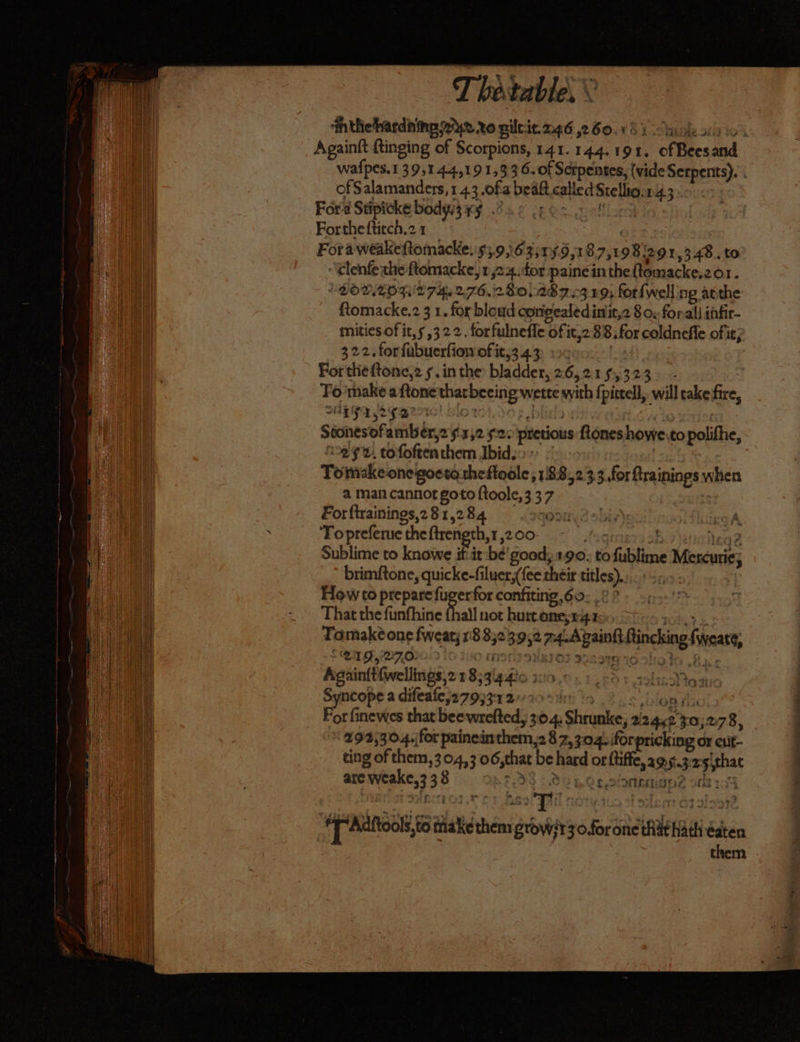 The table.
Against stinging of Scorpions, 141. 144. 191. of Bees and
waspes. 139, 144, 191, 336. of Serpentes, (vide Serpents).
of Salamanders, 143. of a beast called Stellio. 143
For a Stipicke body, 
For the stitch. 21
For a weake stomacke. 5, 9, 63, 159, 187, 198, 291, 348. to
clense the stomacke, 1, 24. for paine in the stomacke, 201.
274, 276. 280. 287. 319, for swelling at the
stomacke. 231. for bloud congealed in it, 280. for all infir-
mities of it, 5, 322. for fulnesse of it, 288. for coldnesse of it,
322. for subuersion of it, 343
For the stone, 25. in the bladder, 26, 215, 323
To make a stone that beeing wette with spittell, will take fire,
Stones of amber, 251, 252. pretious stones howe to polishe,
to soften them Ibid.
To make one goe to the stoole, 188, 233. for strainings when
a man cannot goto stoole, 337
For strainings, 281, 284
To preserue the strength, 1, 200
Sublime to knowe if it be good, 190. to sublime Mercurie,
brimstone, quicke-siluer, (see their titles).
How to prepare suger for confiting, 60.
That the sunshine shall not hurt one, 141
To make one sweat, 188, 239, 274. Against stincking sweate,
219, 270
Against swellings, 218, 314
Syncope a disease, 279, 312
For sinewes that bee wrested, 304. Shrunke, 224, 230, 278,
292, 304. for paine in them, 287, 304. for pricking or cut-
ting of them, 304, 306, that be hard or stiffe, 295. 325, that
are weake, 338
Adstools, to make them grow, 130. for one that hath eaten
them